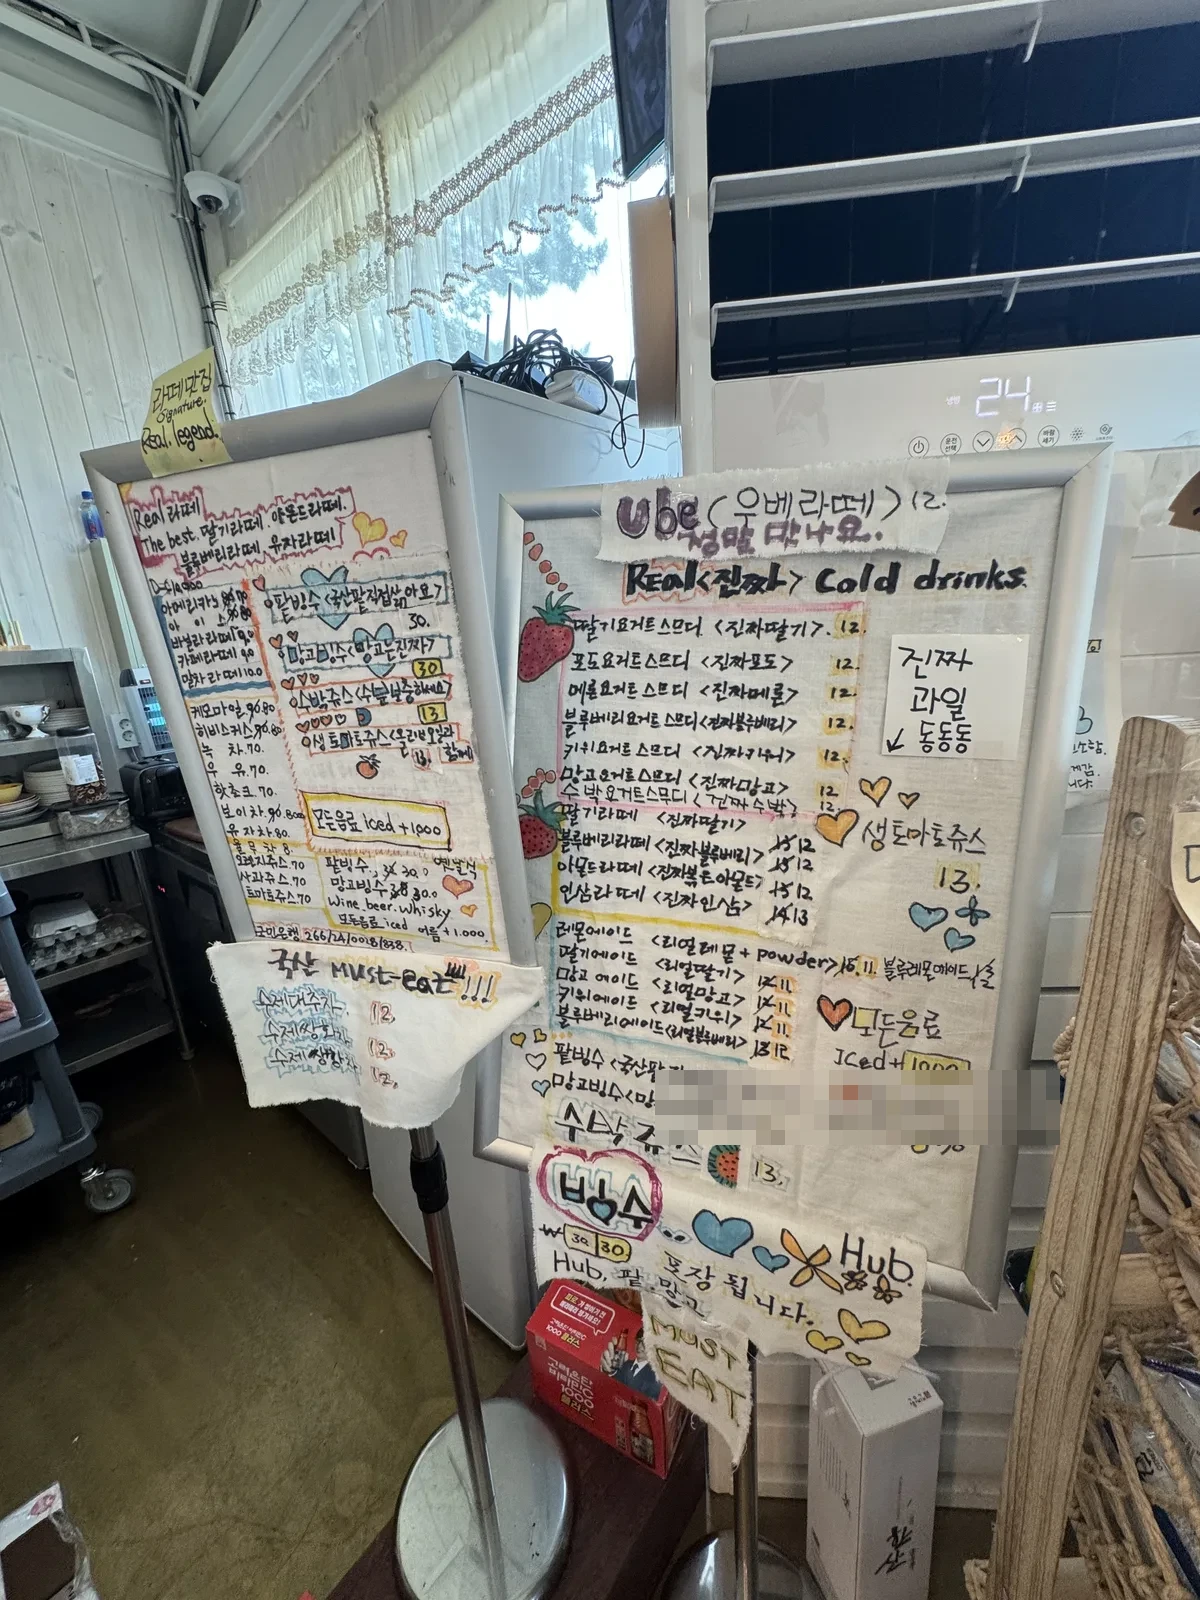 라떼맛집
Signature.
Real. legend.
Real 라떼
The best. 딸기라떼. 아몬드라떼.
블루베리라떼. 유자라떼
아메리카노
바닐라라떼
카페라떼
말차라떼 10.0
케모마일
히비스커스
녹차. 70.
우유. 70.
핫쵸코. 70.
보이차
유자차 80.
율무차 8.
오렌지쥬스. 70
사과쥬스. 70
토마토쥬스. 70
팥빙수 <국산팥직접삶아요>
30.
망고빙수 <망고는진짜>
30
수박쥬스 <수분보충하세요>
13
생토마토쥬스 <올리브오일과
함께
13.
모든음료 iced + 1000
팥빙수
옛날식
망고빙수
Wine. beer. Whisky
모든음료 iced 여름 + 1.000.
국민은행
국산 Must-eat!!!!
수제대추차. 12.
수제쌍화차 12.
수제생강차 12.
24
Ube (우베라떼) 12.
정말 맛나요..
Real <진짜> Cold drinks
딸기요거트스므디 <진짜딸기>. 12.
포도요거트스므디 <진짜포도> 12.
메론요거트스므디 <진짜메론> 12.
블루베리요거트스므디 <진짜블루베리> 12.
키위요거트스므디 <진짜키위> 12.
망고요거트스므디 <진짜망고> 12
수박요거트스무디 <진짜수박> 12.
딸기라떼 <진짜딸기>
블루베리라떼 <진짜블루베리> 15 12
아몬드라떼 <진짜볶은아몬드> 15 12
인삼라떼 <진짜인삼> 14 13
레몬에이드 <리얼레몬 + powder> 15. 11.
딸기에이드 <리얼딸기> 12 11
망고에이드 <리얼망고> 12 11.
키위에이드 <리얼키위> 12 11.
블루베리에이드 <리얼블루베리> 13 12
팥빙수 <국산팥
망고빙수 <망
수박쥬스 13.
진짜
과일
동동동
생토마토쥬스
13.
블루레몬에이드
모든음료
Iced + 1000
빙수
₩ 30 30.
Hub.
Hub, 팥, 망고
포장 됩니다.
MUST
EAT
고려홍삼
비타민C
1000
플러스